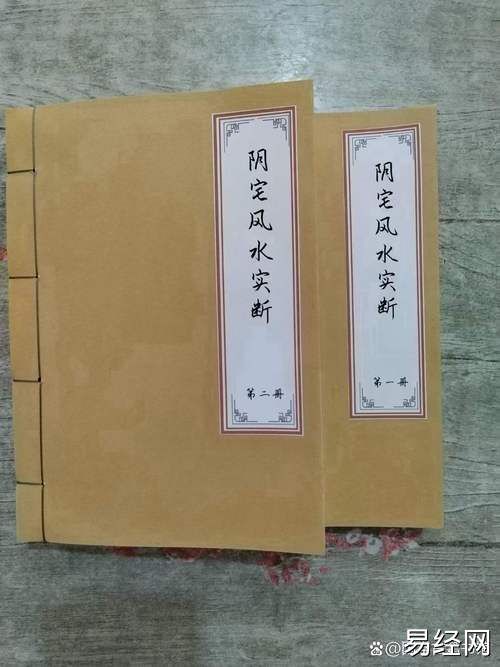 阴宅风水实断
第二册
阴宅风水实断
第一册
易经网